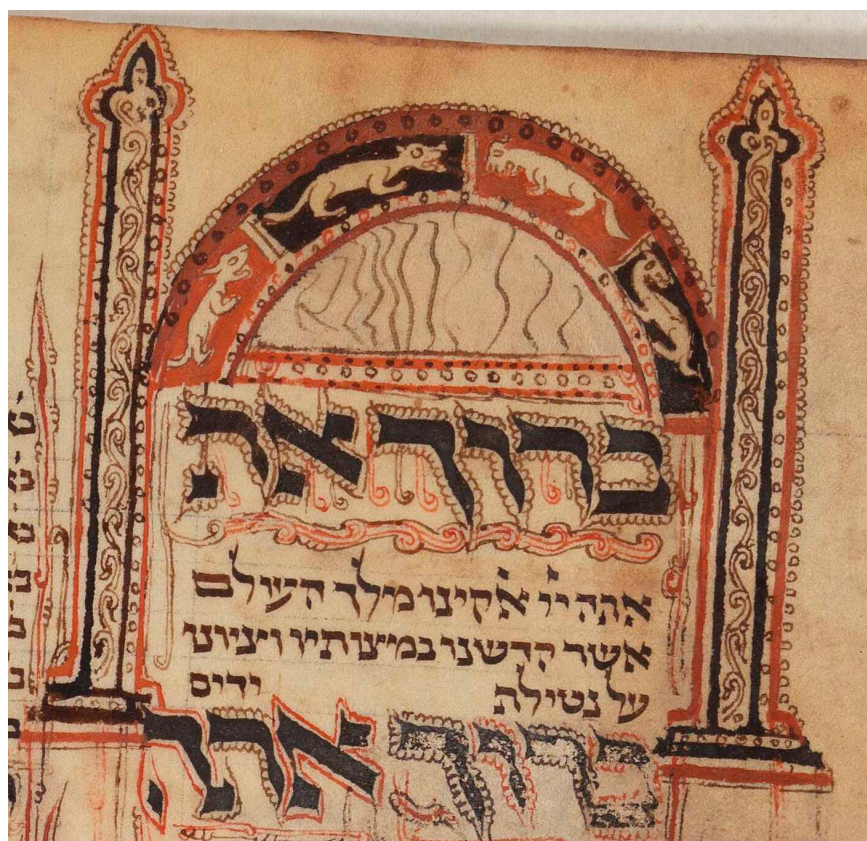 ברוך את
אתה יי ﭏקינו מלך העולם
אשר קדשנו במיצותיו וציונו
על נטילת ידים
ברוך את